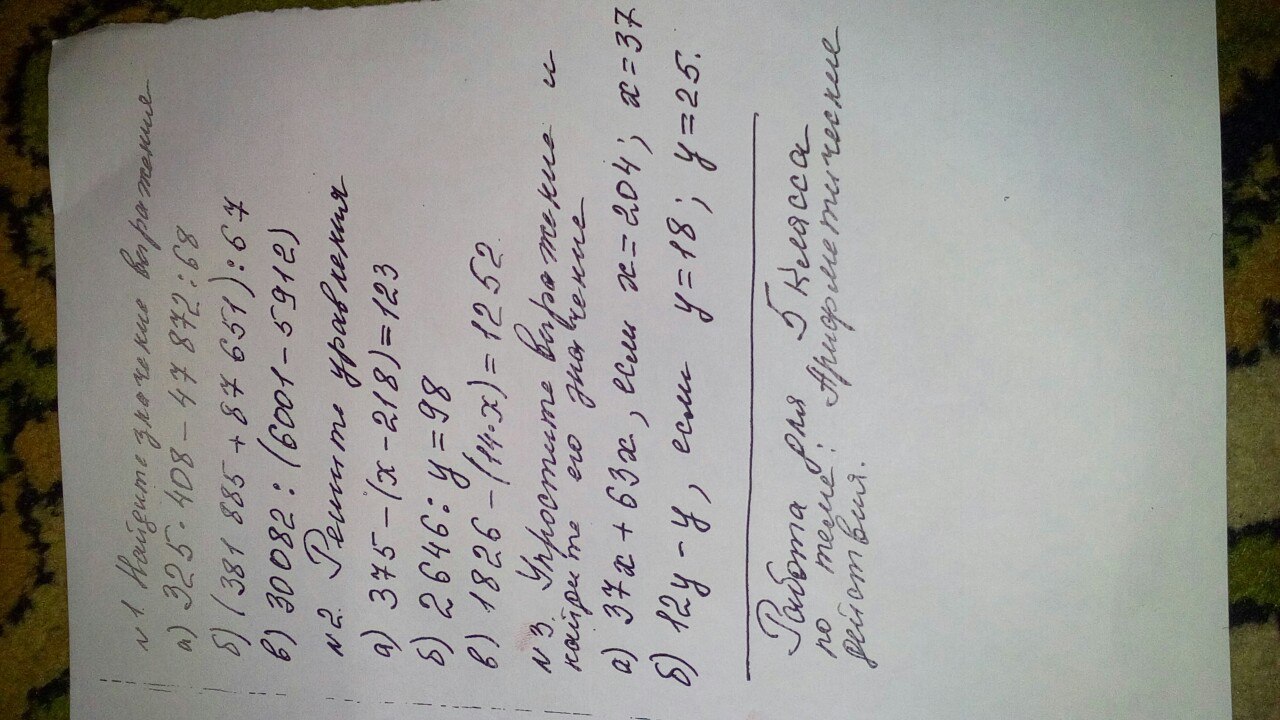 №1. Найдите значение выражение
а) 325·408 – 47 872:68
б) (381 885 + 87 651):67
в) 30082:(6001–5912)
№2. Решите уравнения
а) 375–(x–218)=123
б) 2646:y=98
в) 1826–(14·x)=1252
№3. Упростите выражение и
найдите его значение
а) 37x+63x, если x=204; x=37
б) 12y–y, если y=18; y=25.
Работа для 5 класса
по теме: Арифметические
действия.